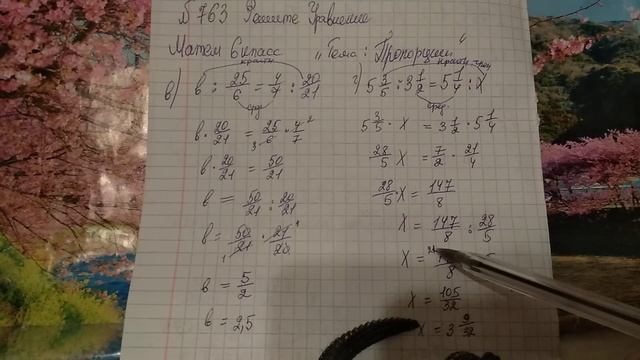 №763 Решите Уравнение
Матем 6 класс "Тема: Пропорции"
крайн
в) в : 25/6 = 4/7 : 20/21
сред
в · 20/21 = 25/6 · 4/7 2
3
в · 20/21 = 50/21
в = 50/21 : 20/21
в = 50/21 · 21/20 1
1
в = 5/2
в = 2,5
крайн член
г) 5 3/5 : 3 1/2 = 5 1/4 : x
сред
5 3/5 · x = 3 1/2 · 5 1/4
28/5 x = 7/2 · 21/4
28/5 · x = 147/8
x = 147/8 : 28/5
x = 21 8
x = 105/32
x = 3 9/32